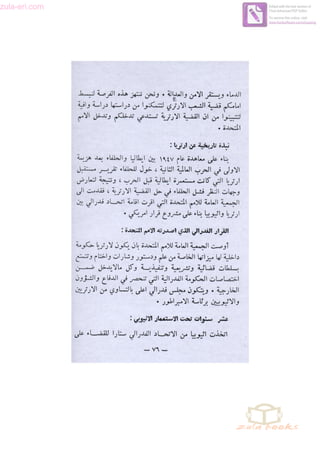 zula-eri.com
الدماء ويستقر الامن والعدالة • ونحن ننتهز هذه الفرصة لنبسط
امامكم قضية الشعب الارتري لتتمكنوا من دراستها دراسة وافية
لتتبينوا من ان القضية الارترية تستدعي تدخلكم وتدخل الامم
المتحدة •
نبذة تاريخية عن ارتريا :
بناء على معاهدة عام ١٩٤٧ بين ايطاليا والحلفاء بعد هزيمة
الاولى في الحرب العالمية الثانية ، خول للحلفاء تقرير مستقبل
ارتريا التي كانت مستعمرة ايطالية قبل الحرب ، ونتيجة لتعارض
وجهات النظر فشل الحلفاء في حل القضية الارترية ، فقدمت الى
الجمعية العامة للامم المتحدة التي اقرت اقامة اتحاد فدرالي بين
ارتريا واثيوبيا بناء على مشروع قرار امريكي •
القرار الفدرالي الذي اصدرته الامم المتحدة :
أوصت الجمعية العامة للامم المتحدة بان يكون لارتريا حكومة
داخلية لها ميزاتها الخاصة من علم ودستور وشارات واختام وتتمتع
بسلطات قضائية وتشريعية وتنفيذية وكل مالايدخل ضمن
اختصاصات الحكومة الفدرالية التي تنحصر في الدفاع والشؤون
الخارجية • ويتكون مجلس فدرالي اعلى بالتساوي من الارتريين
والاثيوبيين برئاسة الامبراطور •
عشر سنوات تحت الاستعمار الاثيوبي :
اتخذت اثيوبيا من الاتحاد الفدرالي ستارا للقضاء على
— ٧٦ —
zula books